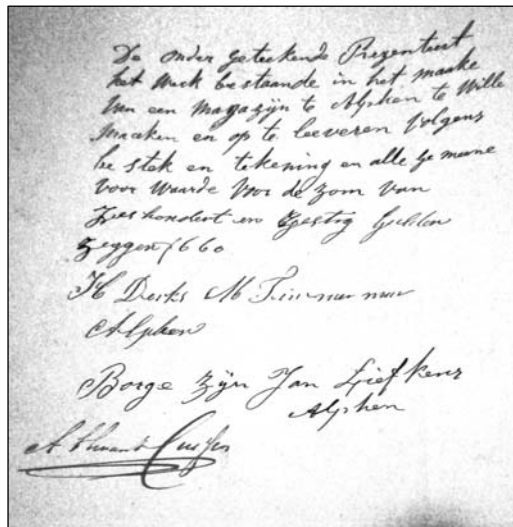 De onder geteekende Prezenteert
het werk bestaande in het maake
van een magazijn te Alphen te Wille
maaken en op te leeveren volgens
be stek en tekening en alle ge meene
voor waarde voor de zom van
Zeshondert en Zestig Gulden
zeggen f 660
H Derks M Timmerman
Alphen
Borge zijn Jan Liefkens
Alphen